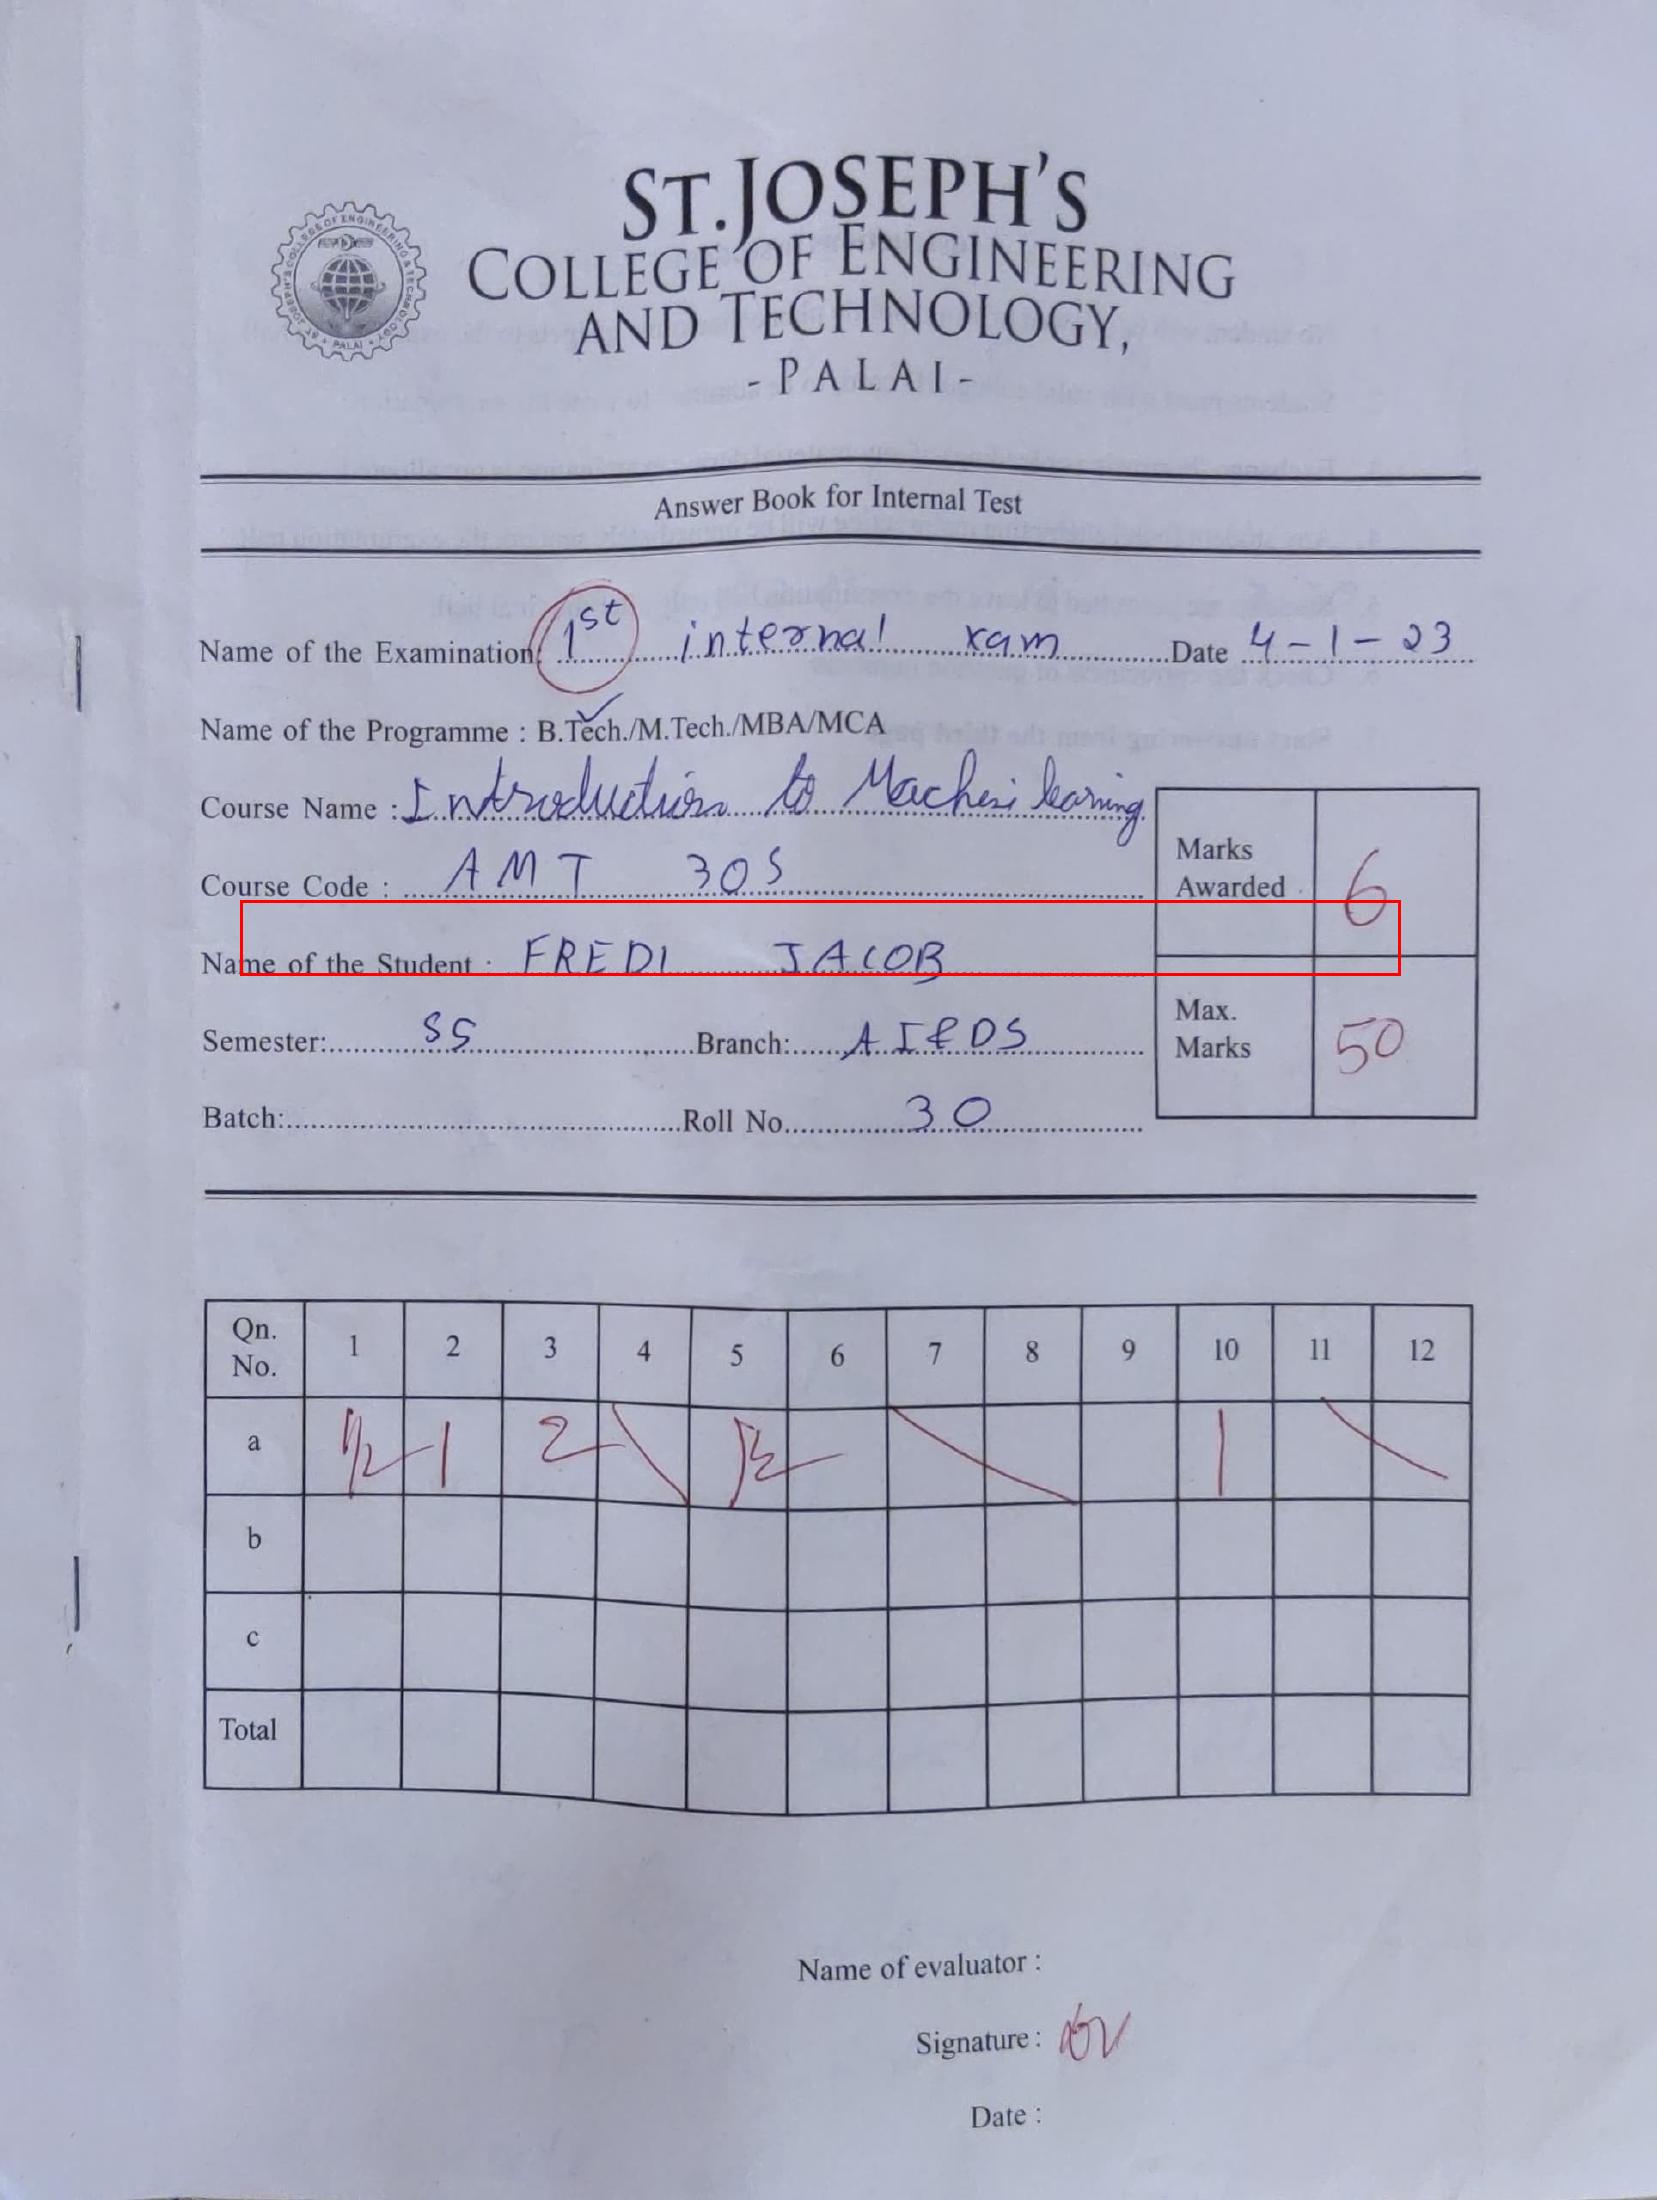 ST.JOSEPH'S
COLLEGE OF ENGINEERING
AND TECHNOLOGY,
- PALAI -
Answer Book for Internal Test
Name of the Examination: 1st internal xam Date 4-1-23
Name of the Programme : B.Tech./M.Tech./MBA/MCA
Course Name : Introduction to learning
Course Code : AMT 305
Marks Awarded 6
Name of the Student : FREDI JACOB
Max. Marks 50
Semester: S5 Branch: AI&DS
Batch: Roll No. 30
Qn. No. 1 2 3 4 5 6 7 8 9 10 11 12
a 1/2 1 2 1
b
c
Total
Name of evaluator :
Signature :
Date :